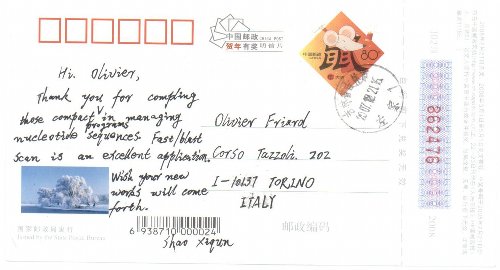 中国邮政 CHINA POST
贺年有奖明信片
中国邮政
80
鼠
Hi, Olivier,
Thank you for compling
these compact programs in managing
nucleotide sequences. Fast/blast
scan is an excellent application.
Wish your new
works will come
forth.
Shao Xiqun
Olivier Friard
Corso Tazzoli. 202
I-10137 TORINO
ITALY
国家邮政局发行
Issued by the State Postal Bureau
6 938710 000024
邮政编码
862476
2008